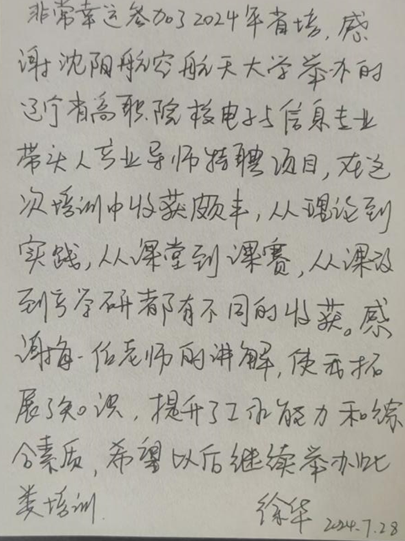 非常幸运参加了2024年省培，感
谢沈阳航空航天大学举办的
辽宁省高职院校电子与信息专业
带头人专业导师特聘项目，在这
次培训中收获颇丰，从理论到
实践，从课堂到课赛，从课改
到学研都有不同的收获。感
谢每一位老师的讲解，使我拓
展了知识，提升了工作能力和综
合素质，希望以后继续举办此
类培训
徐华 2024.7.28